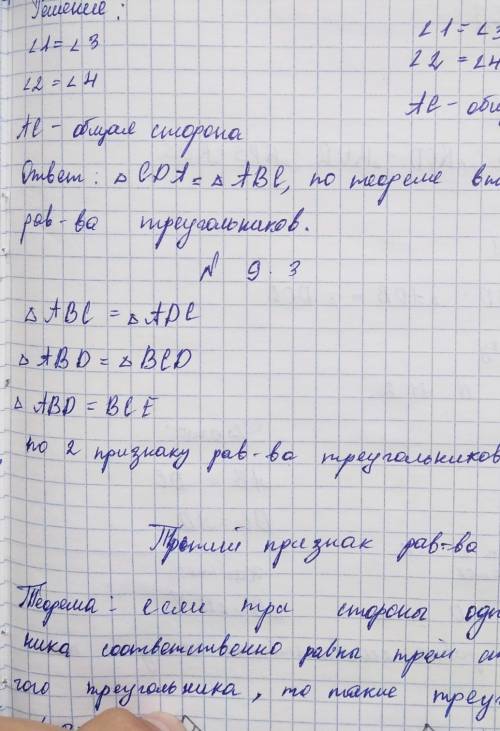 Решение:
∠1=∠3
∠2=∠4
AC - общая сторона
Ответ: △CDA=△ABC, по теореме
рав-ва треугольников.
N 9.3
△ABC = △ADC
△ABD = △BCD
△ABD = BCE
по 2 признаку рав-ва треугольников
Третий признак рав-ва
Теорема: если три стороны
ника соответственно равны трём
гого треугольника, то такие
∠1=∠3
∠2=∠4
AC-